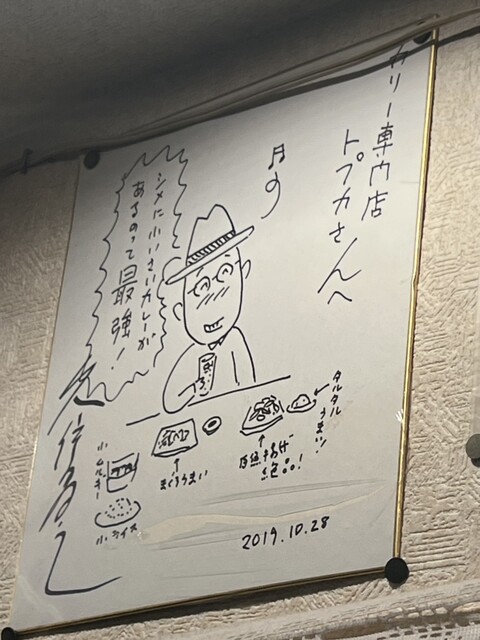 カリー専門店
トプカさんへ
シメに小さいカレーが
あるのって最強!
タルタル
うまい!
揚げ
絶品!!
まぐろうまい
小ムルギー
小ライス
2019.10.28